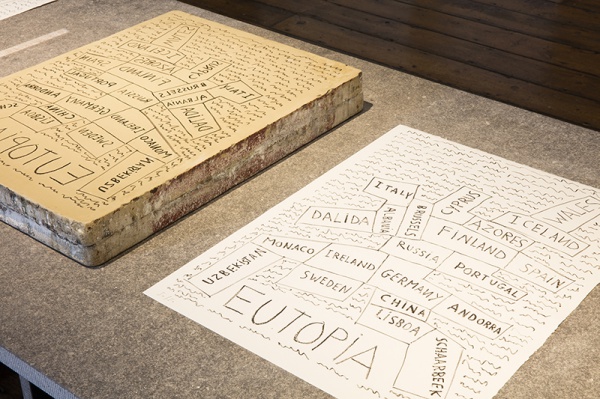 ITALY
CYPRUS
ICELAND
DALIDA
ALBANIA
BRUSSELS
AZORES
FINLAND
SPAIN
MONACO
IRELAND
RUSSIA
PORTUGAL
UZBEKISTAN
SWEDEN
GERMANY
CHINA
LISBOA
ANDORRA
EUTOPIA
SCHAARBEEK
ITALY
BRUSSELS
ALBANIA
DALIDA
GERMANY
IRELAND
MONACO
UZBEKISTAN
EUTOPIA